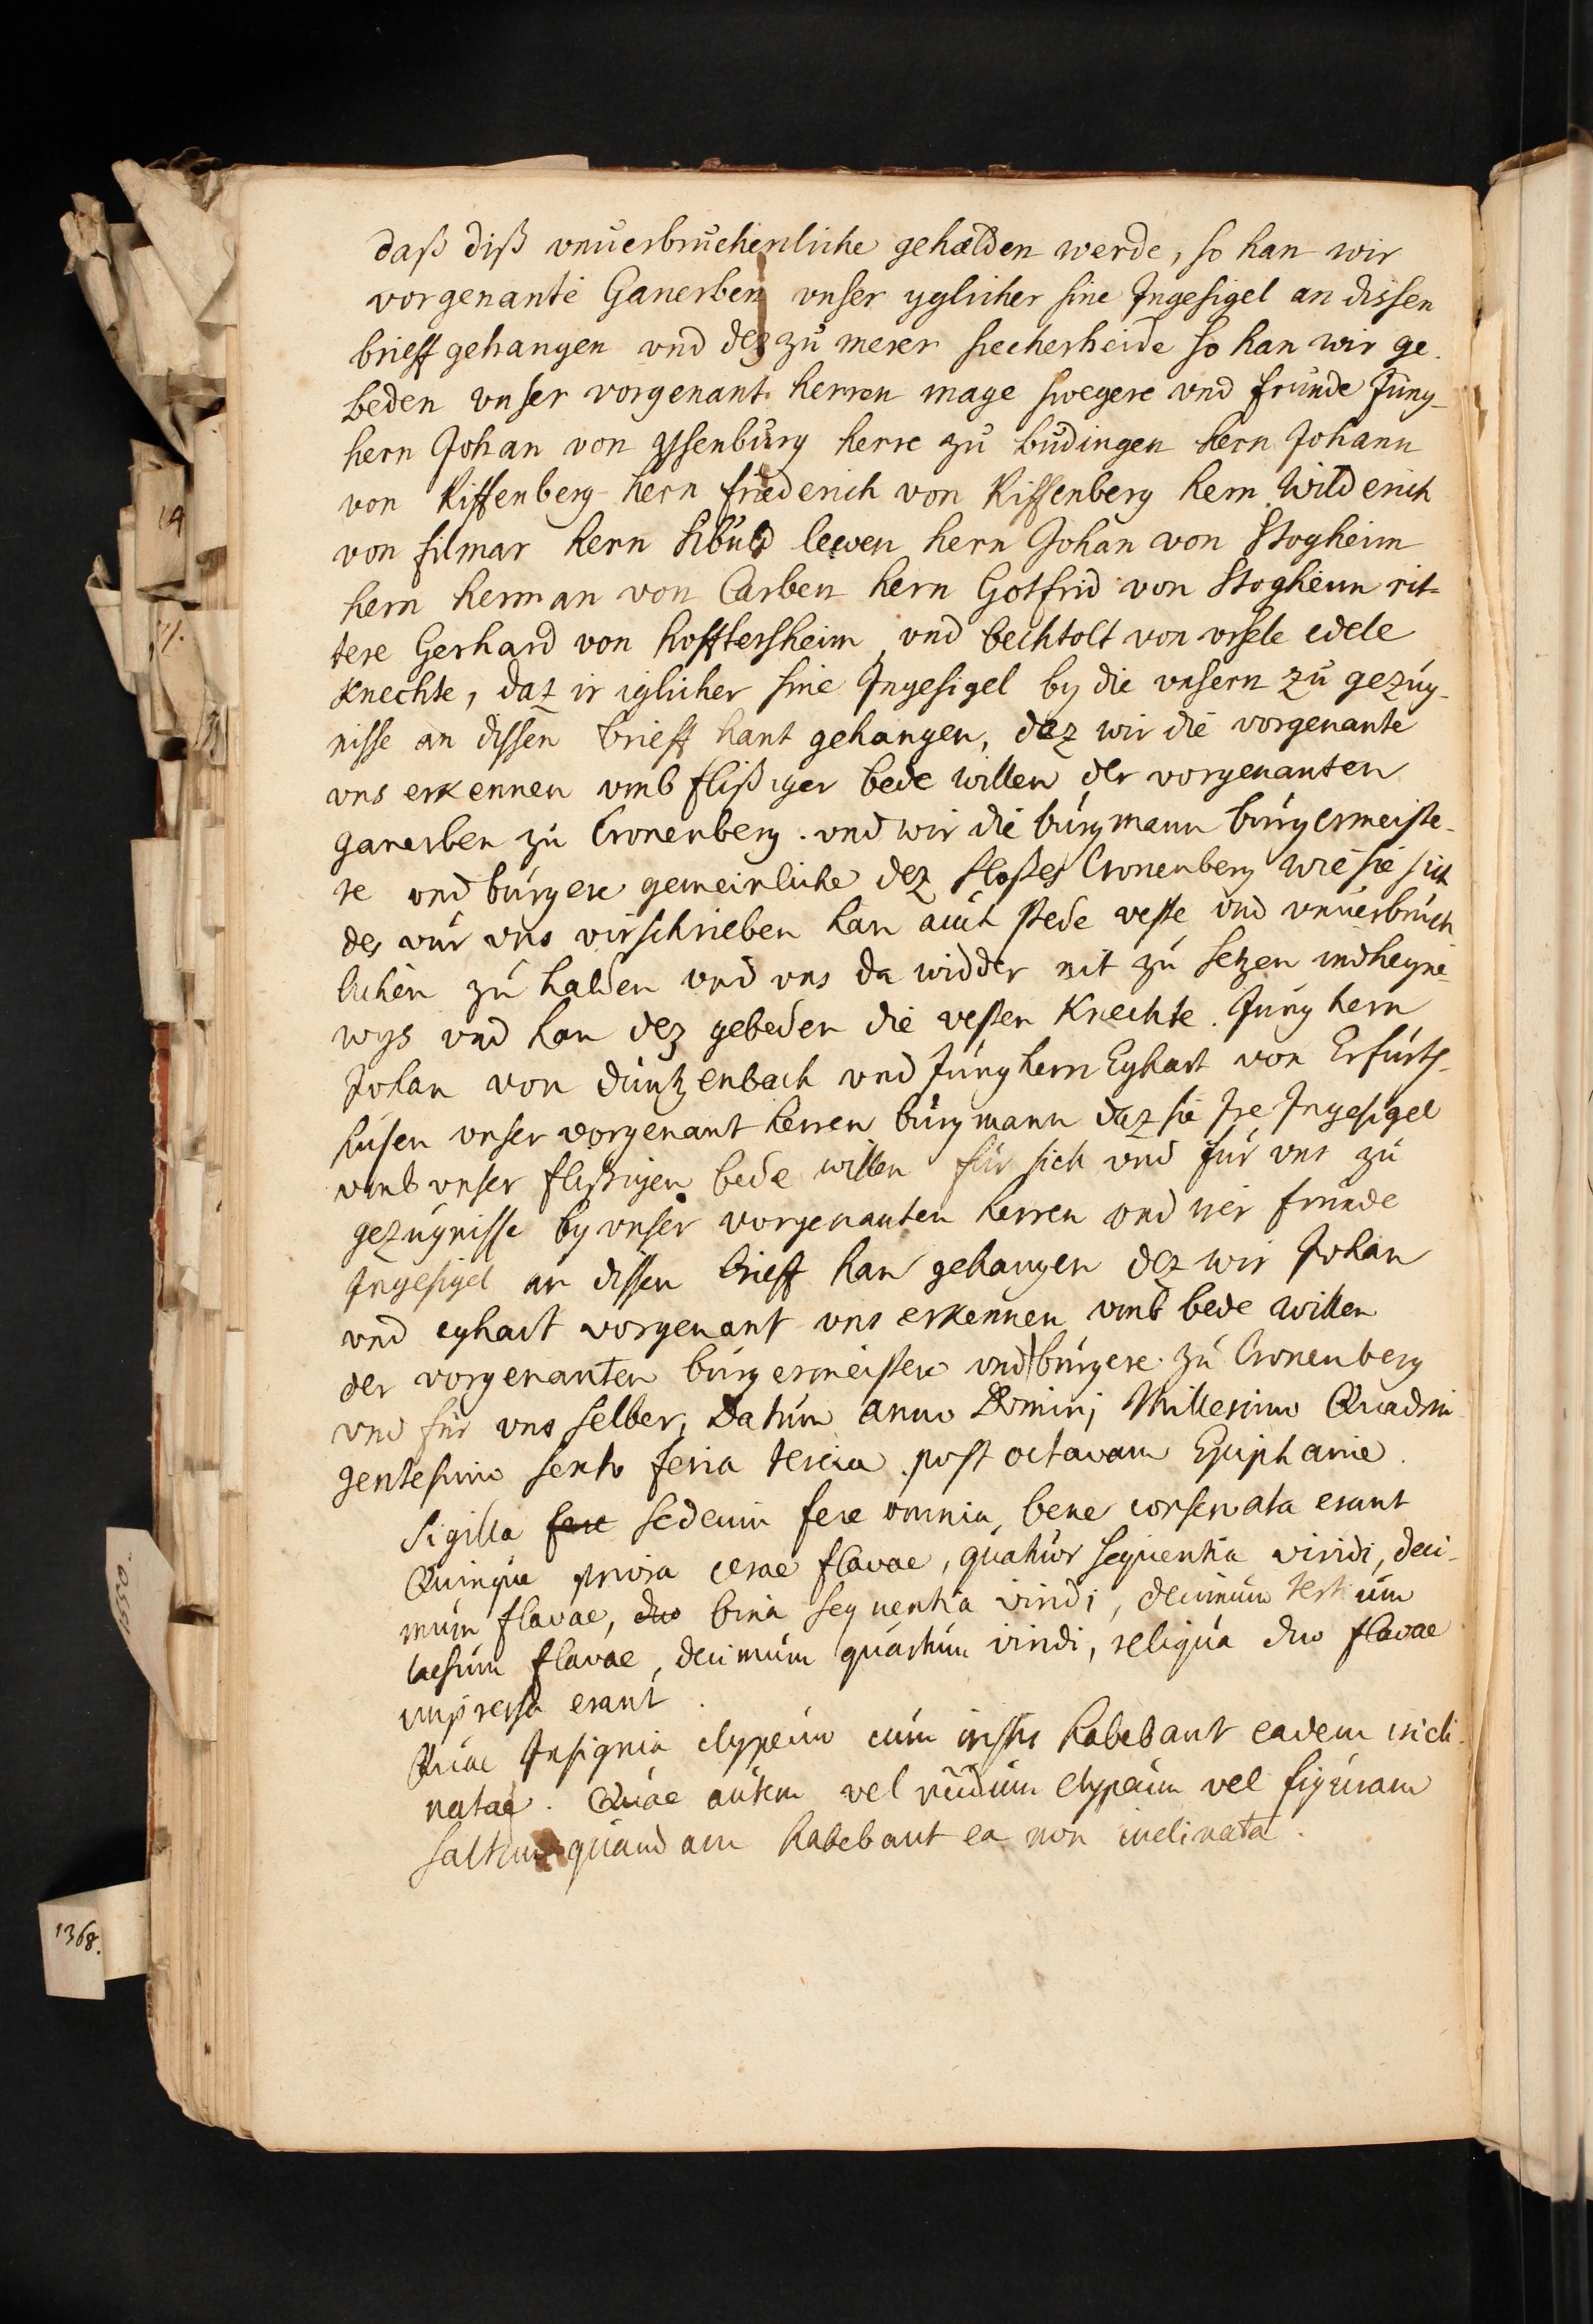 daß diß vnuerbruchenliche gehalden werde, so han wir
vorgenante Ganerben vnser yglicher sine Ingesigel an dissen
brieff gehangen vnd dez zu merer siecherheide so han wir ge-
beden vnser vorgenant herren mage swegere vnd frunde Jung-
hern Johan von Ysenburg herre zu budingen hern Johann
von Riffenberg hern friederich von Riffenberg hern Wilderich
von filmar hern Sibuld lewen hern Johan von Stogheim
hern herman von Carben hern Gotfrid von Stogheim rit-
tere Gerhard von hofftersheim vnd bechtolt von vrsele edele
Knechte, daz ir iglicher sine Ingesigel by die vnsern zu gezug-
nisse an dissen brieff hant gehangen, dez wir die vorgenante
vns erkennen vmb flißiger bede willen der vorgenanten
ganerben zu Cronenberg. vnd wir die burgmann burgermeiste-
re vnd burgere gemeinliche dez sloßes Cronenberg wie sie sich
des vur vns virschrieben han auch stede veste vnd vnuerbruch
lichen zu halden vnd vns da widder nit zu setzen indheyne
wys vnd han dez gebeden die vesten Knechte. Jung hern
Johan von duntzenbach vnd Jung hern Eghart von Erfurts-
husen vnser vorgenant herren burgmann daz sie Ire Ingesigel
vmb vnser flißigen bede willen für sich vnd für vns zu
gezugnisse by vnser vorgenanten herren vnd irer frunde
Ingesigel an dissen brieff han gehangen dez wir Johan
vnd eghart vorgenant vns erkennen vmb bede willen
der vorgenanten burgermeistere vnd burgere zu Cronenberg
vnd für vns selber, Datum anno Domini Millesimo Quadrin
gentesimo sexto feria tercia post octavam Epiphanie.
Sigilla fere sedecim fere omnia bene conservata erant
Quinque priora cerae flavae, quatuor sequentia viridi, deci-
mum flavae, duo bina sequentia viridi, decimum tertium
laesum flavae, decimum quartum viridi, reliqua duo flavae
impressa erant.
Quae Insignia clypeum cum cristis habebant eadem incli-
natae. Quae autem vel nudum clypeum vel figuram
saltem quandam habebant ea non inclinata.
1368.